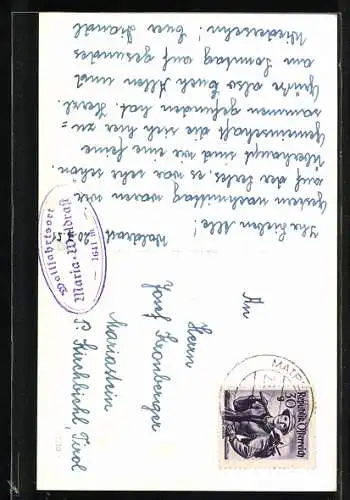 Wallfahrtsort
Maria-Waldrast
1641 m
Waldrast
Ihr lieben Alle!
Gestern nachmittag waren wir
auf der es war sehr schön.
Überhaupt sind wir eine feine
Gemeinschaft die sich hier zu=
sammen gefunden hat. Herzl.
Grüße also Euch Allen und
am Sonntag auf gesundes
Wiedersehn! Eure
An
Herrn
Josef Kronberger
Mariastein
P. Kirchbichl, Tirol
MATR
30 g
Republik Österreich